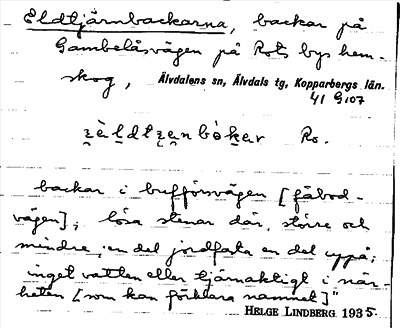 Eldtjärnbackarna, backar på
Gambelåsvägen på Rots bys hem-
skog, Älvdalens sn, Älvdals tg, Kopparbergs län.
41 G 107
Ro.
backar i bufförsvägen [fäbod-
vägen]; lösa stenar där, större och
mindre, en del jordfasta en del uppå;
inget vatten eller tjärnaktigt i när-
heten [som kan förklara namnet]"
HELGE LINDBERG 1935.